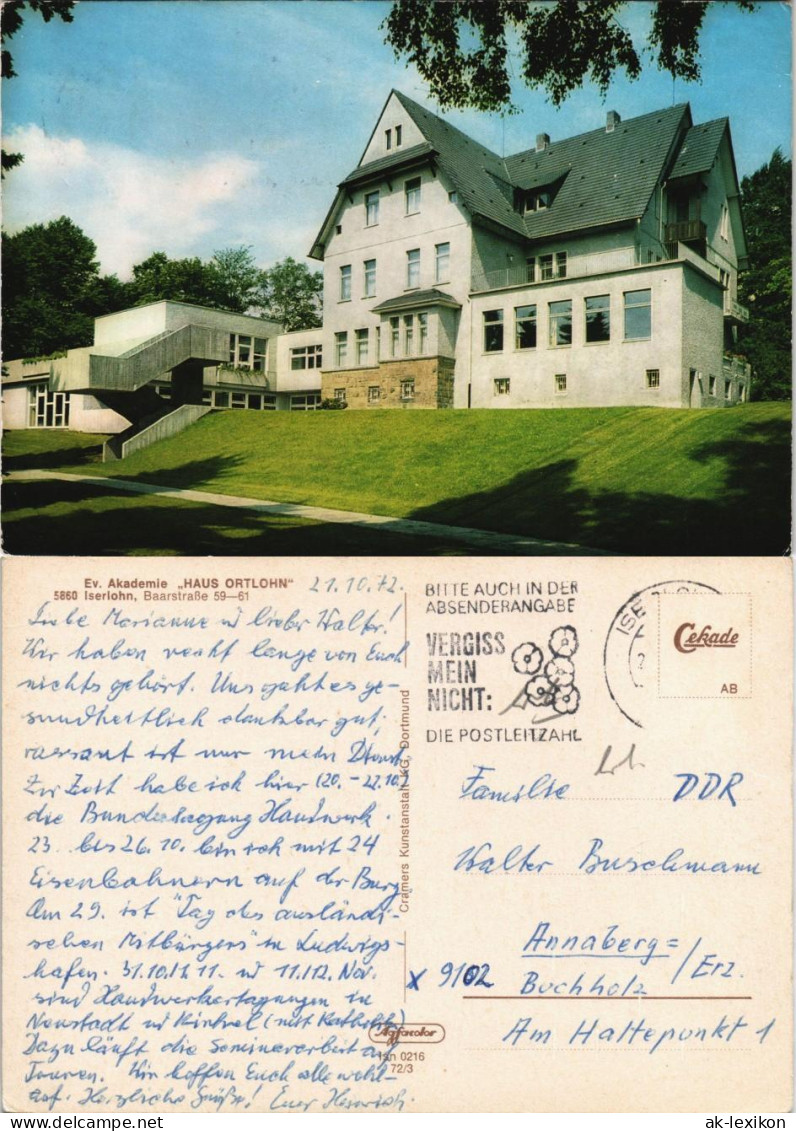 Ev. Akademie „HAUS ORTLOHN"
5860 Iserlohn, Baarstraße 59—61
21.10.72
Liebe Marianne u lieber Walter!
Wir haben recht lange von Euch
nichts gehört. Uns geht es ge-
sundheitlich dankbar gut,
rassant ist nur mein Dienst
Zur Zeit habe ich hier (20. – 22.10.)
die Bundestagung Handwerk.
23. bis 26.10. bin ich mit 24
Eisenbahnern auf der Burg
Am 29. ist "Tag des ausländi-
schen Mitbürgers" in Ludwigs-
hafen. 31.10./1.11. u 11./12. Nov.
sind Handwerkertagungen in
Neustadt u Kirkel (mit Kathol.)
Dazu läuft die Seminararbeit in
Touren. Wir hoffen Euch alle wohl-
auf. Herzliche Grüße! Euer Heinrich
Cramers Kunstanstalt KG, Dortmund
BITTE AUCH IN DER
ABSENDERANGABE
VERGISS
MEIN
NICHT:
DIE POSTLEITZAHL
ISE
Cekade
AB
Familie DDR
Walter Buschmann
Annaberg=
Buchholz /Erz.
x 9102
Am Haltepunkt 1
Agfacolor
Isn 0216
72/3
ak-lexikon